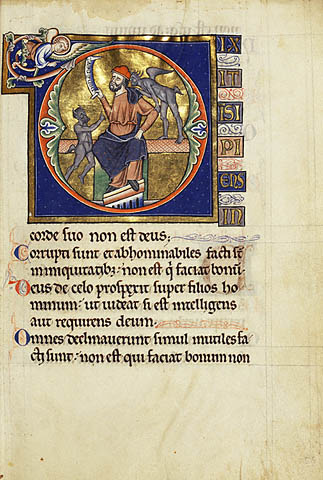 D
IX
IT
ISI
PI
ENS
IN
corde suo non est deus;
Corrupti sunt et abhominabiles facti se
in iniquitatib; non est q faciat bonu͂;
Deus de celo prospexit super filios ho
minum: ut uideat si est intelligens
aut requirens deum.
Omnes declinauerunt simul inutiles fa
cti sunt: non est qui faciat bonum non